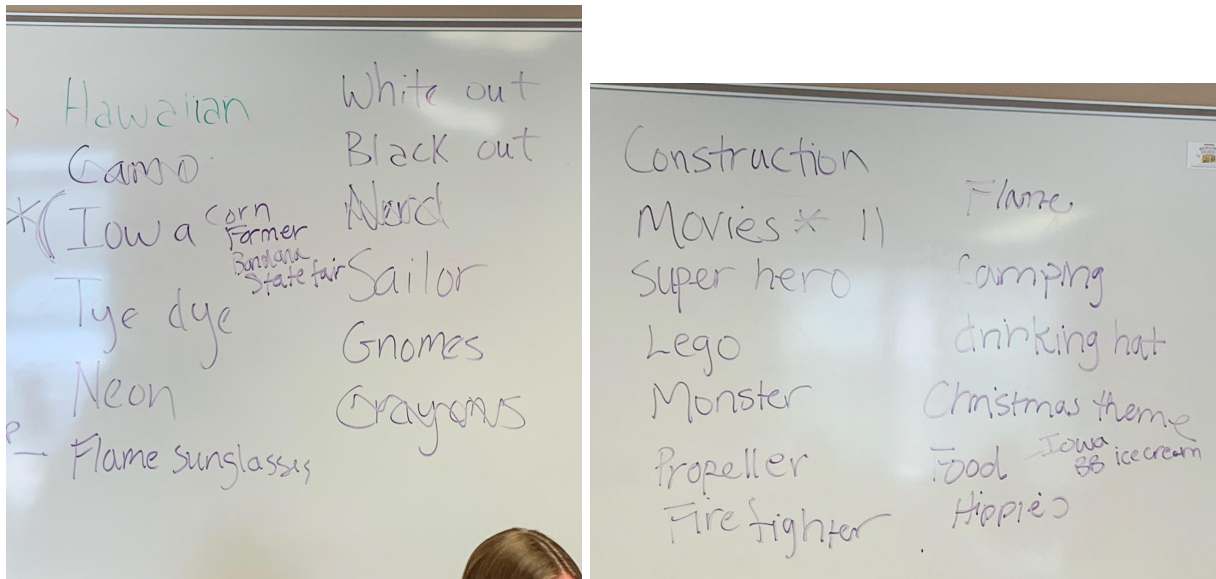 Hawaiian
Camo
*( Iowa
Corn
Farmer
Bandana
State fair
Tye dye
Neon
Flame sunglasses
White out
Black out
Nerd
Sailor
Gnomes
Crayons
Construction
Movies * ||
Super hero
Lego
Monster
Propeller
Fire fighter
Flame
Camping
drinking hat
Christmas theme
Food - Iowa
BB ice cream
Hippies